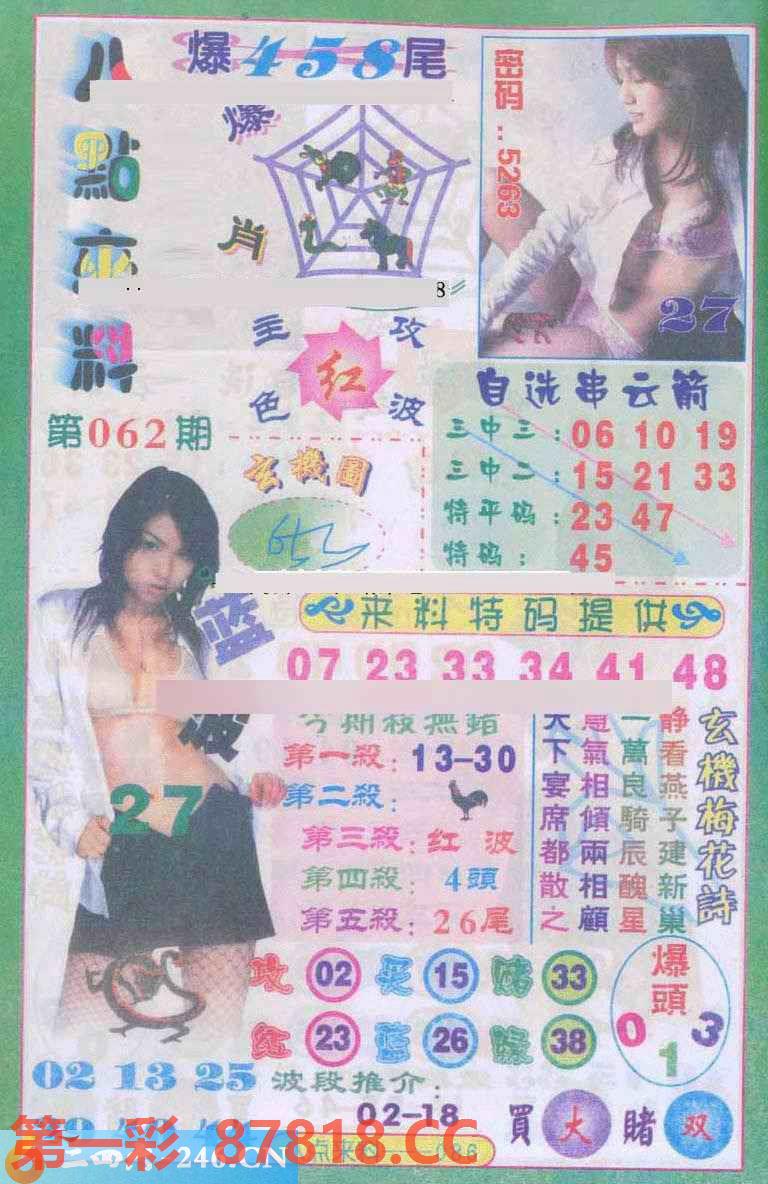 八點來料
爆458尾
爆肖
8
密码..5263
27
主攻
红
色波
第062期
玄機圖
自选串云箭
三中三:06 10 19
三中二:15 21 33
特平码:23 47
特码:45
蓝波
27
来料特码提供
07 23 33 34 41 48
今期殺無錯
第一殺:13-30
第二殺:
第三殺:红波
第四殺:4頭
第五殺:26尾
玄機梅花詩
静看燕子建新巢
一萬良騎辰醜星
意氣相傾兩相顧
天下宴席都散之
攻 02 买 15 赌 33
红 23 蓝 26 綠 38
爆頭
0 1 3
02 13 25
波段推介:
02-18
買大 賭双
第一彩 87818.CC
246.CN